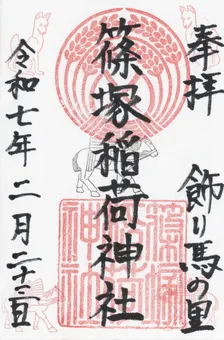 奉拝
飾り馬の里
篠塚稲荷神社
令和七年二月二十三日